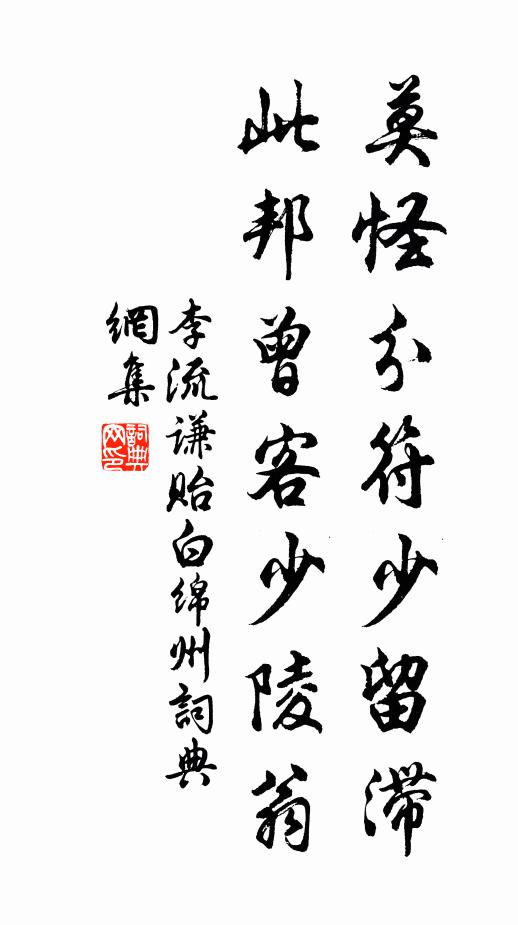 莫怪分符少留滞
此邦曾客少陵翁
李流谦贻白绵州詞典
網集
詞典
网印